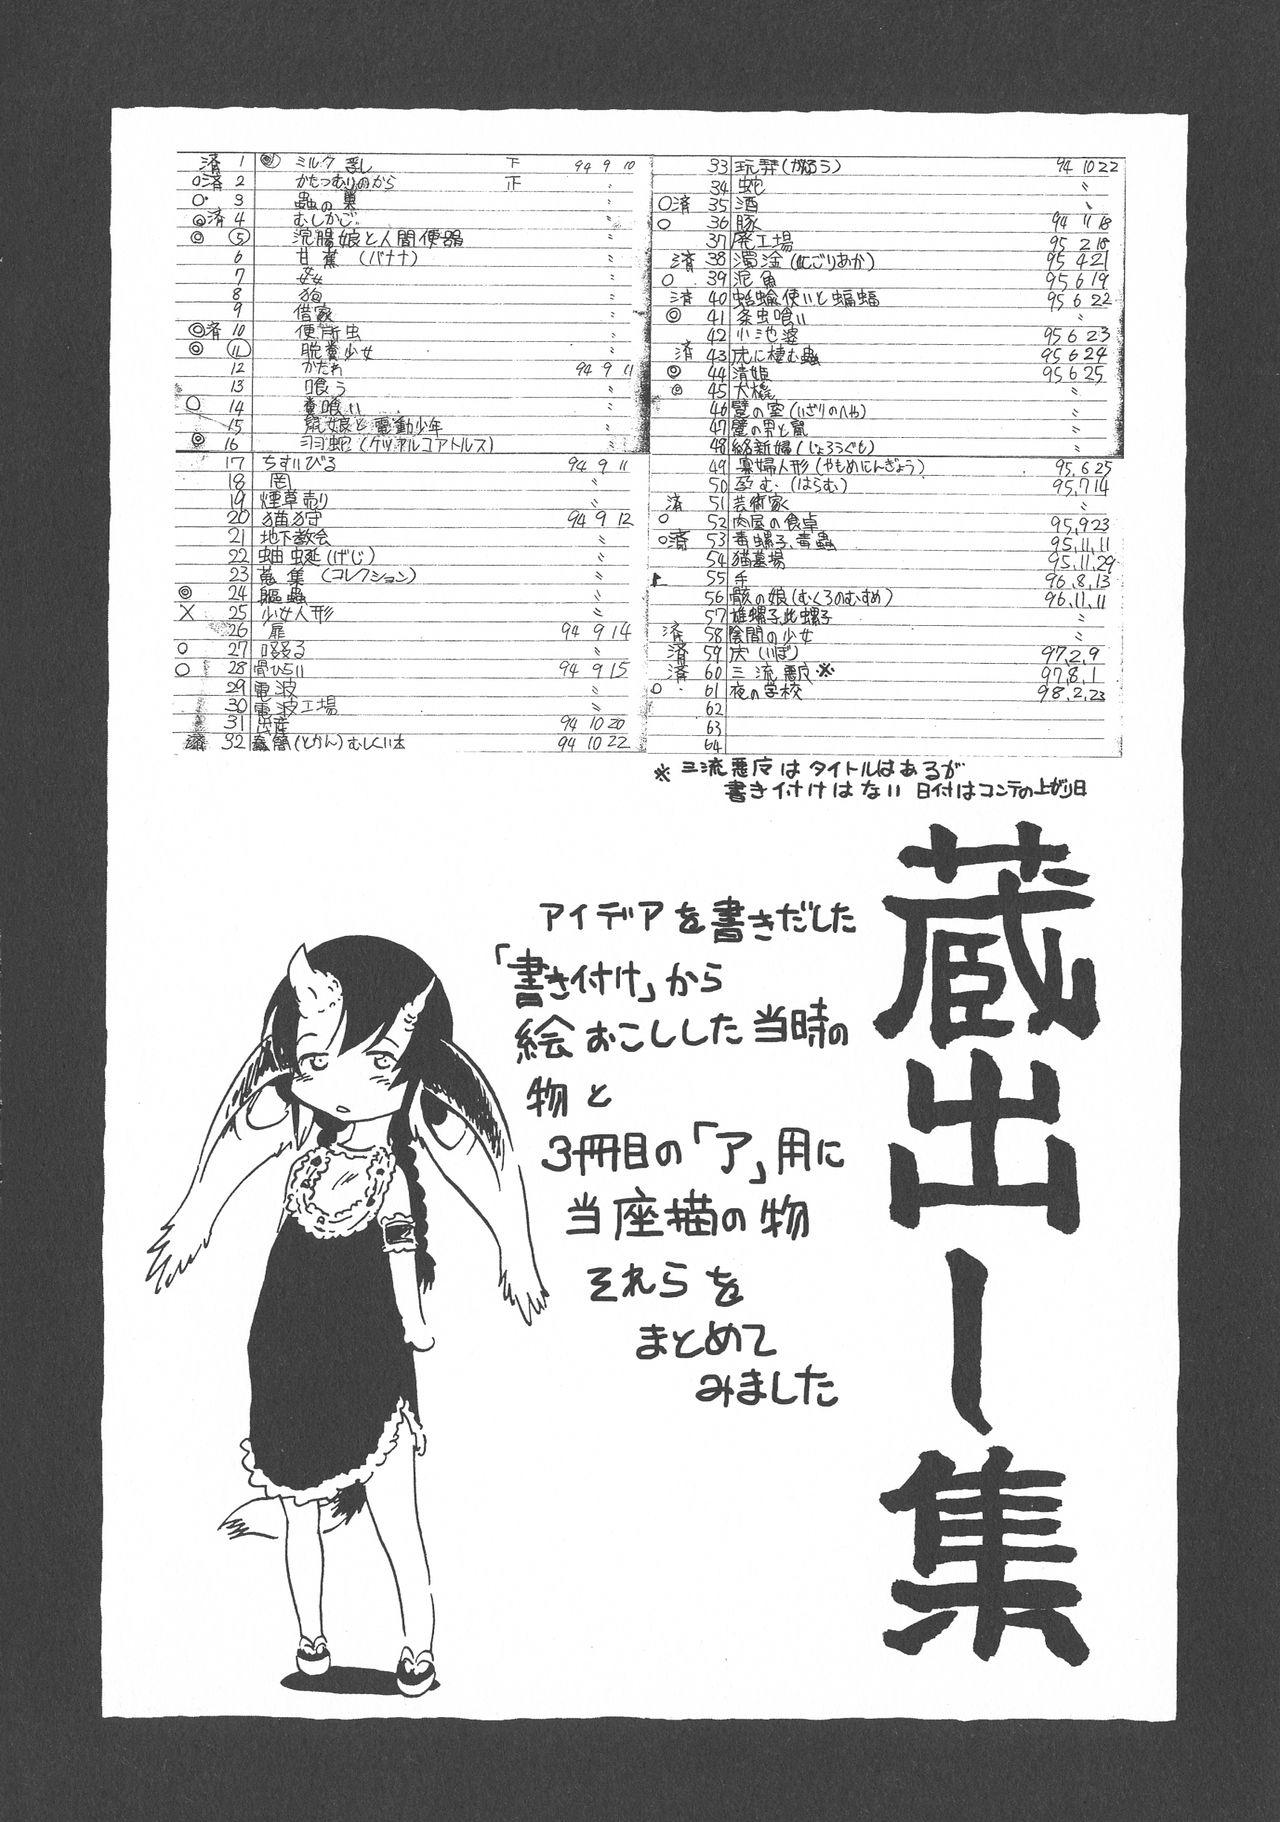 済 1 ◎ ミルク 浮し 下 94 9 10
○済 2 かたつむりのから 下 〃
○ 3 蟲の巣 〃
◎済 4 むしかご 〃
◎ ⑤ 浣腸娘と人間便器 〃
6 甘蕉 (バナナ) 〃
7 〃
8 狗 〃
9 借家 〃
◎済 10 便所虫 〃
◎ ⑪ 脱糞少女 〃
12 かたわ 94 9 11
13 喰う
○ 14 糞喰い
15 鼠娘と電動少年
◎ 16 羽蛇 (ケツァルコアトルス) 〃
17 ちすいびる 94 9 11
18 罔 〃
19 煙草売り 〃
20 猫狩 94 9 12
21 地下教会 〃
22 蚰蜒 (げじ) 〃
23 蒐集 (コレクション) 〃
◎ 24 軀蟲 〃
× 25 少女人形 〃
26 扉 94 9 14
○ 27 啜る 〃
○ 28 骨ひろい 94 9 15
29 電波 〃
30 電波工場 〃
31 出産 94 10 20
済 32 蠹簡 (とかん) むしくい本 94 10 22
33 玩弄 (がろう) 94 10 22
34 蛇 〃
○済 35 酒 〃
○ 36 豚 94 11 18
37 廃工場 95 2 18
済 38 濁淦 (にごりあか) 95 4 21
○ 39 泥魚 95 6 19
済 40 蛞蝓使いと蝙蝠 95 6 22
◎ 41 条虫喰い 〃
42 小池婆 95 6 23
済 43 虎に棲む蟲 95 6 24
◎ 44 清姫 95 6 25
◎ 45 犬橇 〃
46 躄の室 (いざりのへや) 〃
47 躄の男と鼠 〃
48 絡新婦 (じょろうぐも) 〃
49 寡婦人形 (やもめにんぎょう) 95.6 25
50 孕む (はらむ) 95.7 14
済 51 芸術家 〃
○ 52 肉屋の食卓 95,9 23
○済 53 毒螺子、毒蟲 95,11,11
54 猫墓場 95,11,29
55 手 96,8,13
56 骸の娘 (むくろのむすめ) 96,11,11
57 雄螺子、雌螺子 〃
済 58 陰間の少女 〃
済 59 疣 (いぼ) 97,2,9
済 60 三流悪役※ 97,8,1
○ 61 夜の学校 98,2,23
62
63
64
※ 三流悪役はタイトルはあるが
書き付けはない 日付はコンテの上がり日
蔵出し集
アイデアを書きだした
「書き付け」から
絵おこしした当時の
物と
3冊目の「ア」用に
当座描の物
それらを
まとめて
みました